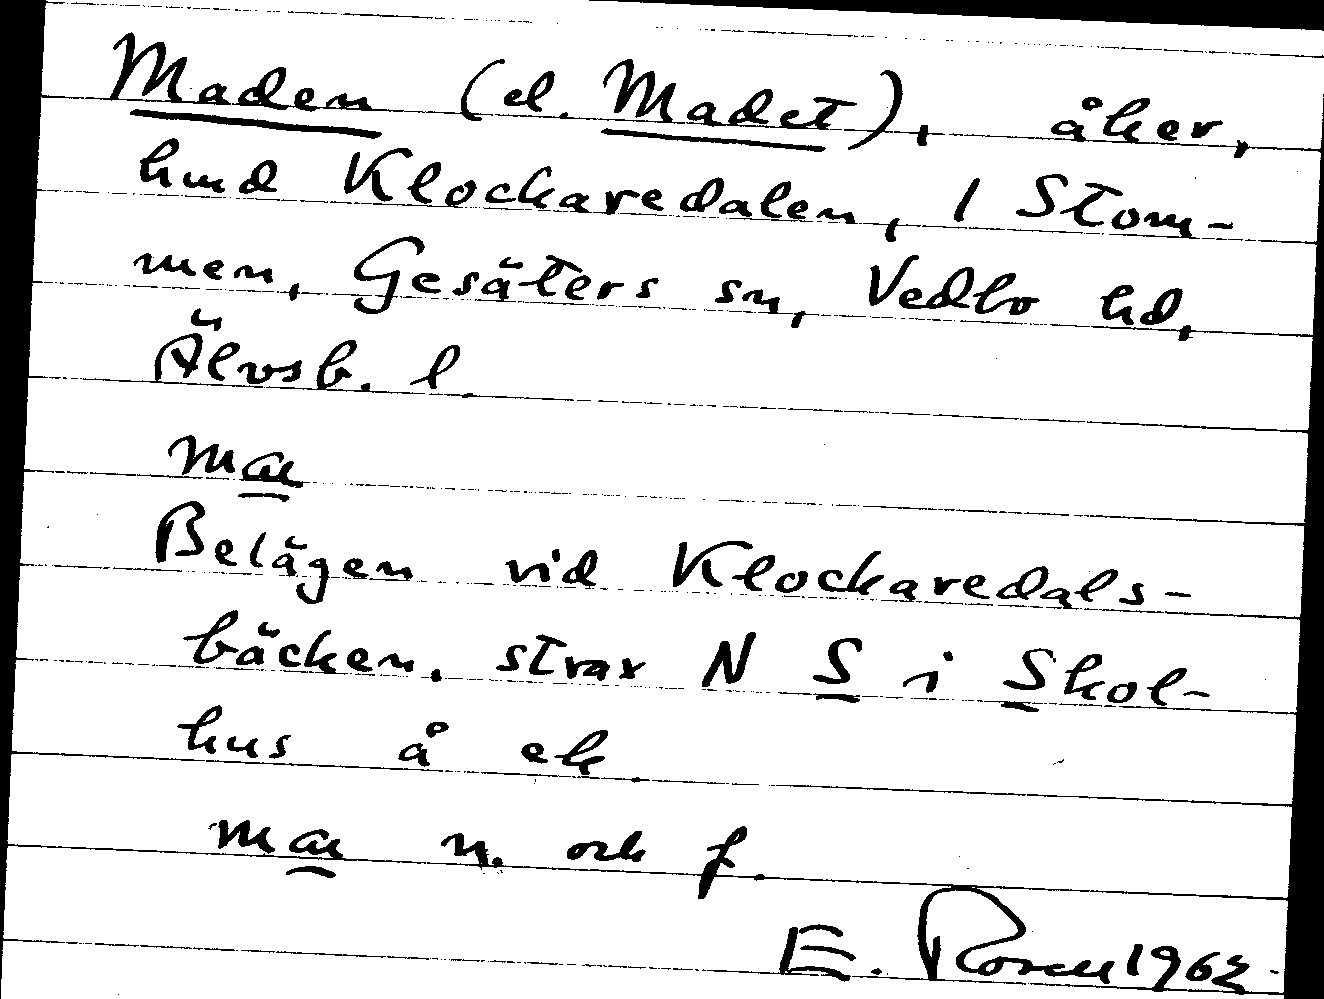 Maden (el. Madet), åker,
hmd Klockaredalen, 1 Stom-
men, Gesäters sn, Vedbo hd,
Älvsb. l.
Belägen vid Klockaredals-
bäcken, strax N S i Skol-
hus å ek.
n. och f.
E. Rosell 1962